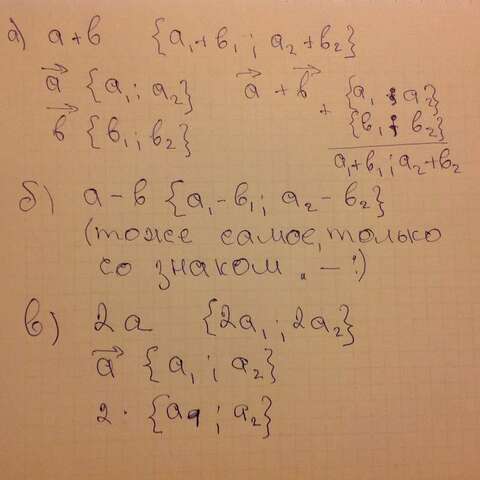 а) a+b {a₁+b₁; a₂+b₂}
a⃗ {a₁; a₂} a⃗ + b⃗ + {a₁; a₂}
b⃗ {b₁; b₂} {b₁; b₂}
a₁+b₁; a₂+b₂
б) a-b {a₁-b₁; a₂-b₂}
(тоже самое, только
со знаком „-“:)
в) 2a {2a₁; 2a₂}
a⃗ {a₁; a₂}
2· {a₁; a₂}